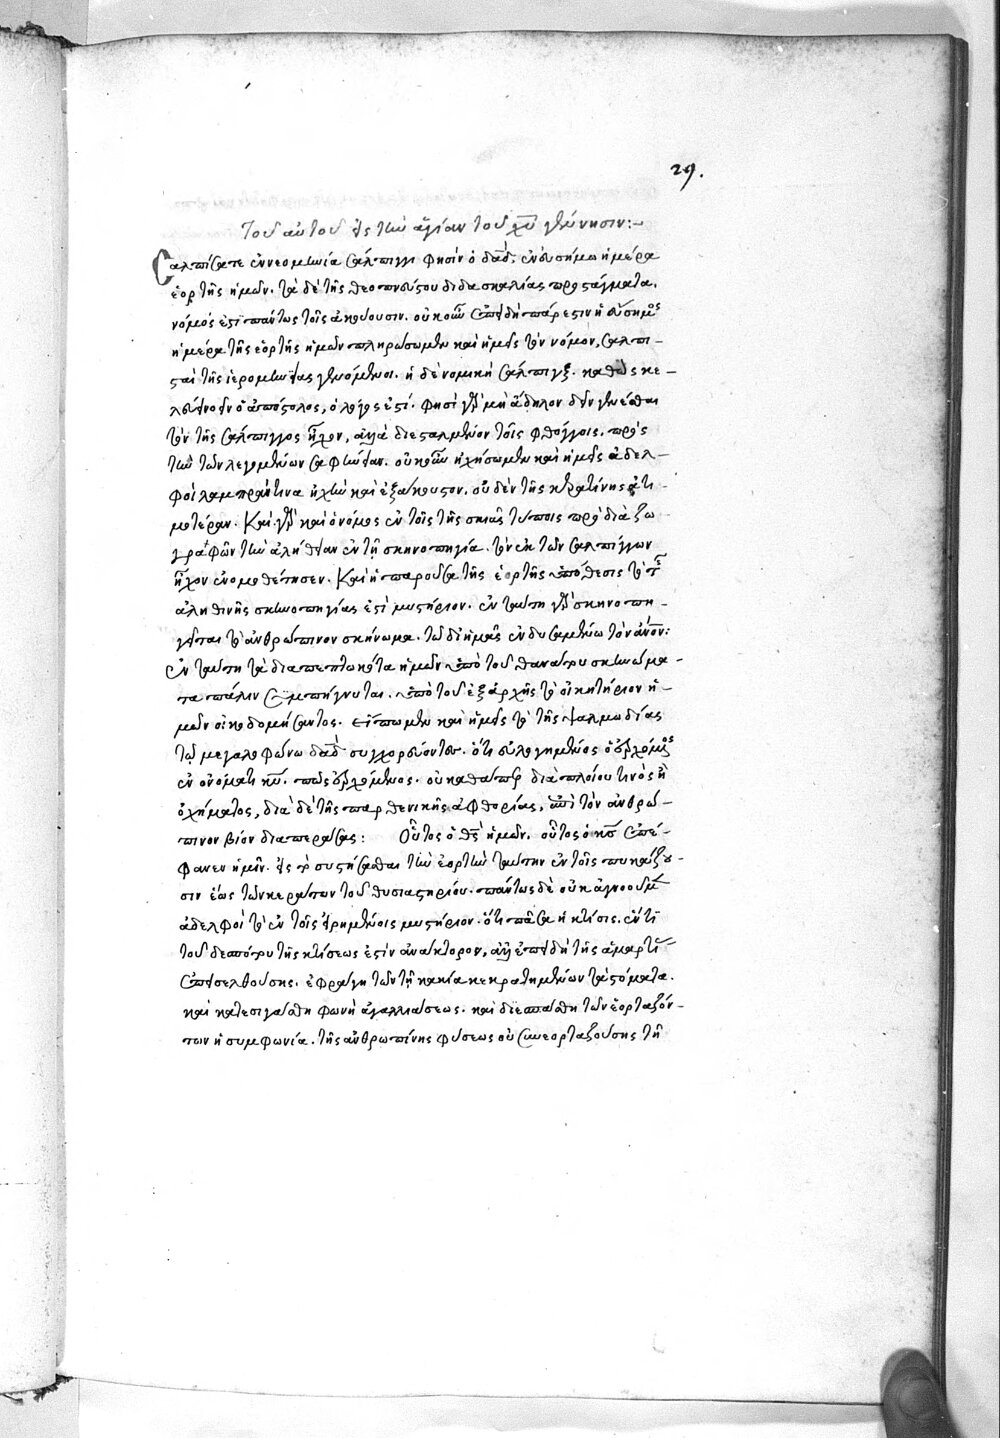 29.
Τοῦ αὐτοῦ εἰς τὴν ἁγίαν τοῦ χυ γέννησιν:-
Σαλπίσατε ἐν νεομηνία σάλπιγγι φησὶν ὁ δαδ. ἐν εὐσήμω ἡμέρα
ἑορτῆς ἡμῶν. τὰ δὲ τῆς θεοπνεύστου διδασκαλίας προστάγματα,
νόμός ἐστι πάντως τοῖς ἀκούουσιν. οὐκοῦν ἐπειδὴ πάρεστιν ἡ εὔσημος
ἡμέρα τῆς ἑορτῆς ἡμῶν πληρώσωμεν καὶ ἡμεῖς τὸν νόμον, σαλπι-
σταὶ τῆς ἱερομηνίας γενόμενοι. ἡ δὲ νομικὴ σάλπιγξ. καθὼς κε-
λεύει νοεῖν ὁ ἀπόστολος, ὁ λόγος ἐστί. φησὶ γὰρ μὴ ἄδηλον δεῖν γενέσθαι
τὸν τῆς σάλπιγγος ἦχον, ἀλλὰ διεσταλμένον τοῖς φθόγγοις. πρὸς
τὴν τῶν λεγομένων σαφήνειαν. οὐκοῦν ἠχήσωμεν καὶ ἡμεῖς ἀδελ-
φοὶ λαμπράν τινα ἠχὴν καὶ ἐξάκουστον. οὐδὲν τῆς κερατίνης ἀτι-
μοτέραν. Καὶ γὰρ καὶ ὁ νόμος ἐν τοῖς τῆς σκιᾶς τύποις προδιαζω-
γραφῶν τὴν ἀλήθειαν ἐν τῇ σκηνοπηγία. τὸν ἐκ τῶν σαλπίγγων
ἦχον ἐνομοθέτησεν. Καὶ ἡ παροῦσα τῆς ἑορτῆς ὑπόθεσις τὸ τῆς
ἀληθινῆς σκηνοπηγίας ἐστὶ μυστήριον. ἐν ταύτη γὰρ σκηνοπη-
γεῖται τὸ ἀνθρώπινον σκήνωμα. τῶ δι ἡμᾶς ἐνδυσαμένω τὸν ἄνον:
ἐν ταύτη τὰ διαπεπτωκότα ἡμῶν ὑπὸ τοῦ θανάτου σκηνώμα-
τα πάλιν συμπήγνυται. ὑπὸ τοῦ ἐξαρχῆς τὸ οἰκητήριον ἡ-
μῶν οἰκοδομήσαντος. εἴπωμεν καὶ ἡμεῖς τὸ τῆς ψαλμωδίας
τῷ μεγαλοφώνω δαδ συγχορεύοντες. ὅτι εὐλογημένος ὁ ἐρχόμενος
ἐν ὀνόματι κυ. πῶς ἐρχόμενος. οὐ καθάπερ διὰ πλοίου τινὸς ἢ
ὀχήματος, διὰ δὲ τῆς παρθενικῆς ἀφθορίας, ἐπὶ τὸν ἀνθρώ-
πινον βίον διαπεράσας: Οὗτος ὁ θς ἡμῶν. οὗτος ὁ κς ἐπέ-
φανεν ἡμῖν. εἰς τὸ συστήσασθαι τὴν ἑορτὴν ταύτην ἐν τοῖς πυκάζου-
σιν ἕως τῶν κεράτων τοῦ θυσιαστηρίου. πάντως δὲ οὐκ ἀγνοοῦμεν
ἀδελφοὶ τὸ ἐν τοῖς εἰρημένοις μυστήριον. ὅτι πᾶσα ἡ κτίσις. ἕν τι
τοῦ δεσπότου τῆς κτίσεως ἐστὶν ἀνάκτορον, ἀλλ ἐπειδὴ τῆς ἁμαρτίας
ἐπεισελθούσης. ἐφράγη τῶν τῇ κακία κεκρατημένων τὰ στόματα.
καὶ κατεσιγάσθη φωνὴ ἀγαλλιάσεως. καὶ διεσπάσθη τῶν ἑορταζόν-
των ἡ συμφωνία. τῆς ἀνθρωπίνης φύσεως οὐ συνεορταζούσης τῇ